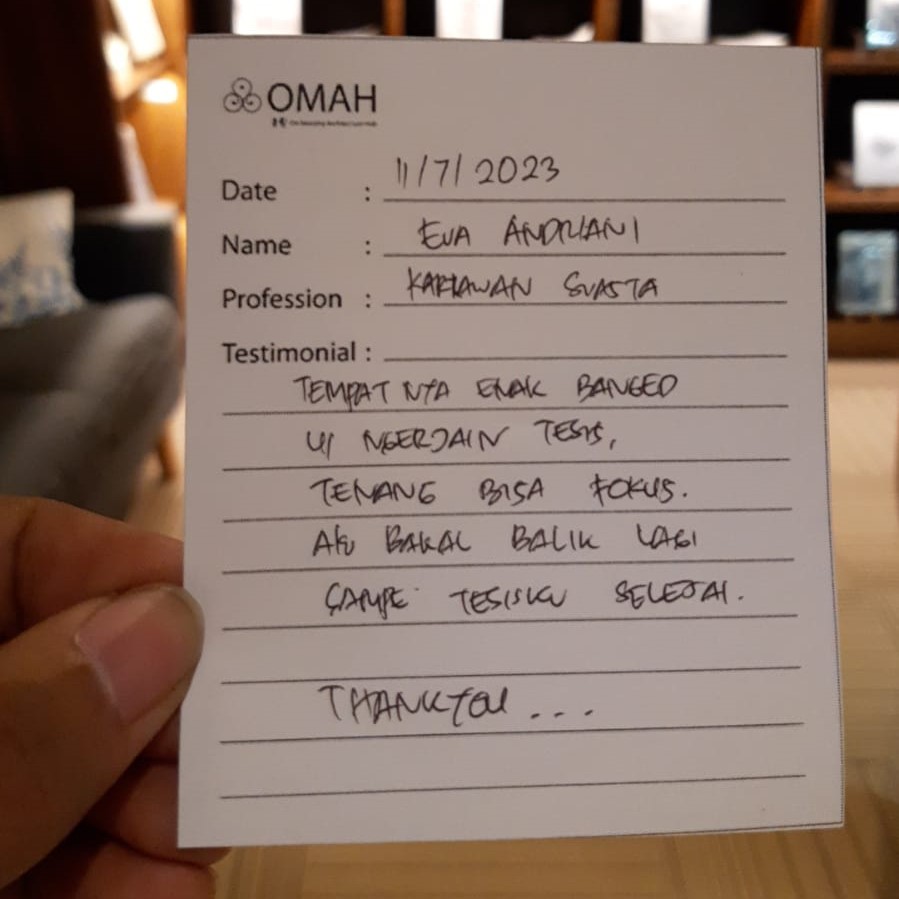 OMAH
Date : 11/7/2023
Name : EVA ANDRIANI
Profession : KARIAWAN SWASTA
Testimonial :
TEMPAT NYA ENAK BANGED
U/ NGERJAIN TESIS,
TENANG BISA FOKUS.
AKU BAKAL BALIK LAGI
SAMPE TESISKU SELESAI.
THANKYOU...